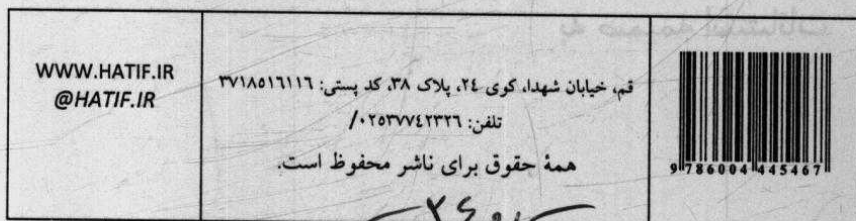 WWW.HATIF.IR
@HATIF.IR
قم، خیابان شهدا، کوی ۲٤، پلاک ۳۸، کد پستی: ۳۷۱۸۵۱٦۱۱٦
تلفن: ۰۲۵۳۷۷٤۲۳۲٦/
همهٔ حقوق برای ناشر محفوظ است.
9 786004 445467